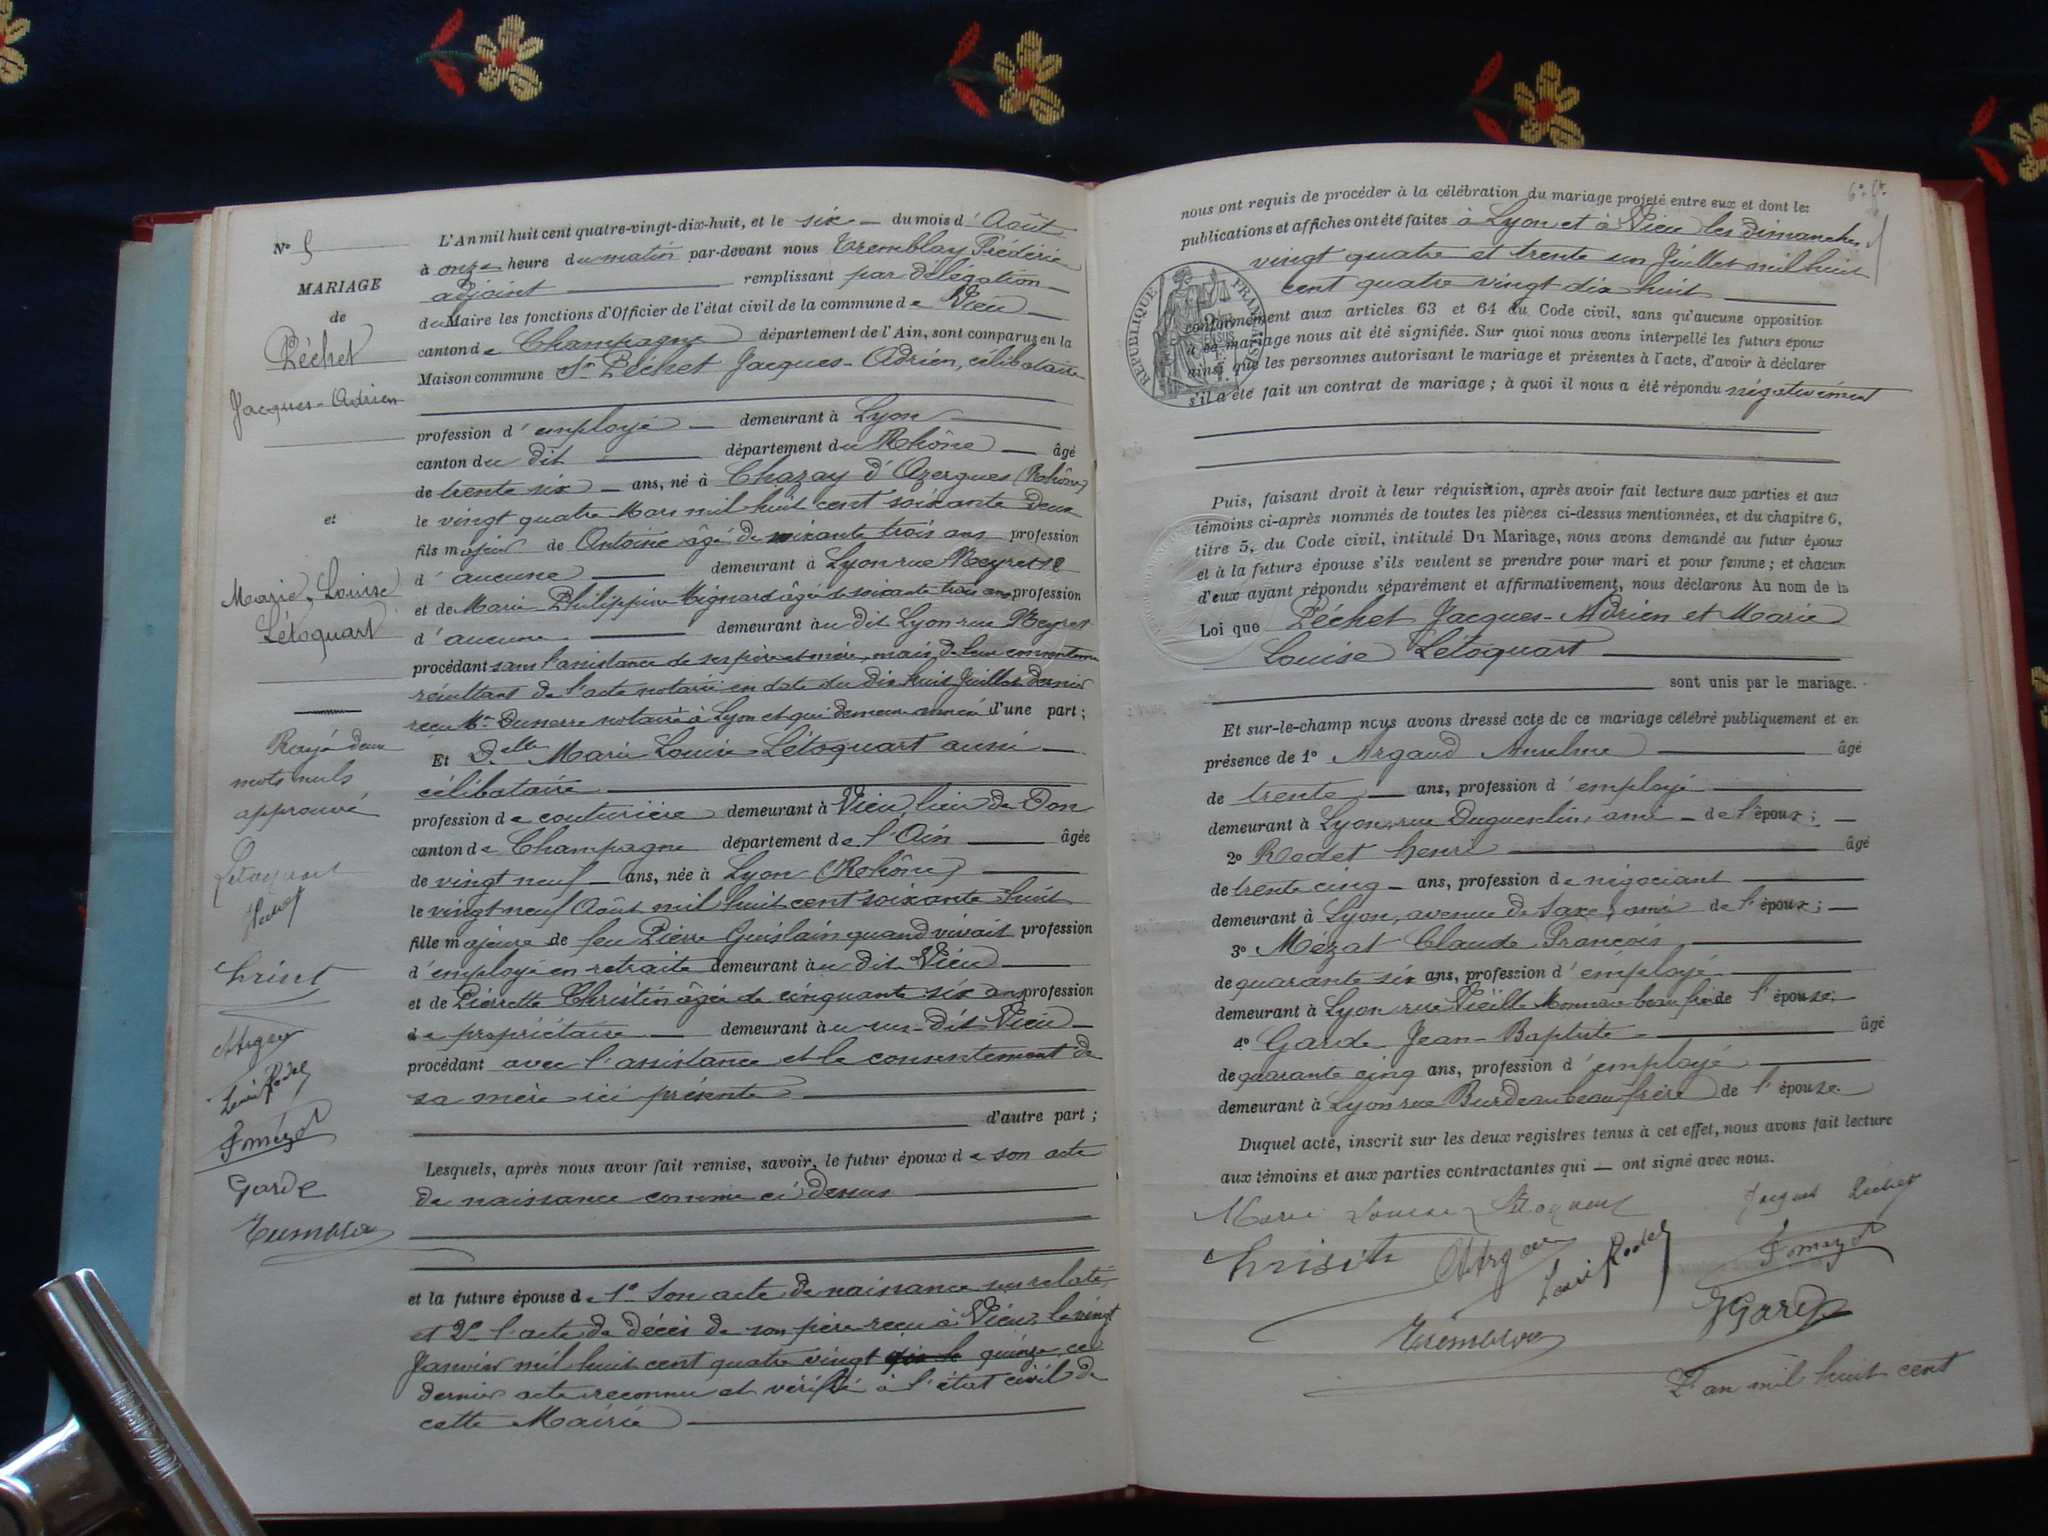 N° 5
MARIAGE
de
Péchet
Jacques-Adrien
et
Marie, Louise
Létoquart
Rayé deux
mots nuls
approuvé
Létoquart
Argau
Henri Rodet
F Mézat
Garde
Tremblay
L'An mil huit cent quatre-vingt-dix-huit, et le six du mois d'Août
à onze heure du matin par-devant nous Tremblay Frédéric
adjoint remplissant par délégation
du Maire les fonctions d'Officier de l'état civil de la commune de Vieu
canton de Champagne département de l'Ain, sont comparus en la
Maison commune Sr Péchet Jacques-Adrien, célibataire
profession d'employé demeurant à Lyon
canton du dit département du Rhône âgé
de trente six ans, né à Chazay d'Azergues (Rhône)
le vingt quatre Mars mil huit cent soixante deux
fils majeur de Antoine âgé de soixante trois ans profession
d'aucune demeurant à Lyon rue Neyret 12
et de Marie Philippine Mignard âgée de soixante trois ans profession
d'aucune demeurant au dit Lyon rue Neyret
procédant sans l'assistance de ses père et mère, mais de leur consentement
résultant de l'acte notarié en date du dix huit Juillet dernier
reçu Me notaire à Lyon et qui demeure annexé d'une part ;
Et Delle Marie Louise Létoquart aussi
célibataire
profession de couturière demeurant à Vieu lieu de Don
canton de Champagne département de l'Ain âgée
de vingt neuf ans, née à Lyon (Rhône)
le vingt neuf Août mil huit cent soixante huit
fille majeure de feu Pierre Guislain quand vivait profession
d'employé en retraite demeurant au dit Vieu
et de Pierrette Christin âgée de cinquante six ans profession
de propriétaire demeurant au sus-dit Vieu
procédant avec l'assistance et le consentement de
sa mère ici présente
d'autre part ;
Lesquels, après nous avoir fait remise, savoir, le futur époux de son acte
de naissance comme ci dessus
et la future épouse de 1° Son acte de naissance sus relaté
et 2° l'acte de décès de son père reçu à Vieu, le vingt
Janvier mil huit cent quatre vingt quinze, ce
dernier acte reconnu et vérifié à l'état civil de
cette Mairie
nous ont requis de procéder à la célébration du mariage projeté entre eux et dont les
publications et affiches ont été faites à Lyon et à Vieu les dimanches
vingt quatre et trente un Juillet mil huit
cent quatre vingt dix huit
REPUBLIQUE FRANÇAISE
conformément aux articles 63 et 64 du Code civil, sans qu'aucune opposition
à ce mariage nous ait été signifiée. Sur quoi nous avons interpellé les futurs époux
ainsi que les personnes autorisant le mariage et présentes à l'acte, d'avoir à déclarer
s'il a été fait un contrat de mariage ; à quoi il nous a été répondu négativement
Puis, faisant droit à leur réquisition, après avoir fait lecture aux parties et aux
témoins ci-après nommés de toutes les pièces ci-dessus mentionnées, et du chapitre 6,
titre 5, du Code civil, intitulé Du Mariage, nous avons demandé au futur époux
et à la future épouse s'ils veulent se prendre pour mari et pour femme ; et chacun
d'eux ayant répondu séparément et affirmativement, nous déclarons Au nom de la
Loi que Péchet Jacques-Adrien et Marie
Louise Létoquart
sont unis par le mariage.
Et sur-le-champ nous avons dressé acte de ce mariage célébré publiquement et en
présence de 1° Argaud Anselme âgé
de trente ans, profession d'employé
demeurant à Lyon, rue Duguesclin, ami de l'époux ;
2° Rodet henri âgé
de trente cinq ans, profession de négociant
demeurant à Lyon, avenue de Saxe, ami de l'époux ;
3° Mézat Claude François
de quarante six ans, profession d'employé
demeurant à Lyon rue Vieille Monnaie beau frère de l'épouse
4° Garde Jean-Baptiste âgé
de quarante cinq ans, profession d'employé
demeurant à Lyon rue Burdeau beau frère de l'épouse
Duquel acte, inscrit sur les deux registres tenus à cet effet, nous avons fait lecture
aux témoins et aux parties contractantes qui ont signé avec nous.
Marie Louise Létoquart Jacques Péchet
Christin Argau Henri Rodet F Mézat
Tremblay J Garde
L'an mil huit cent